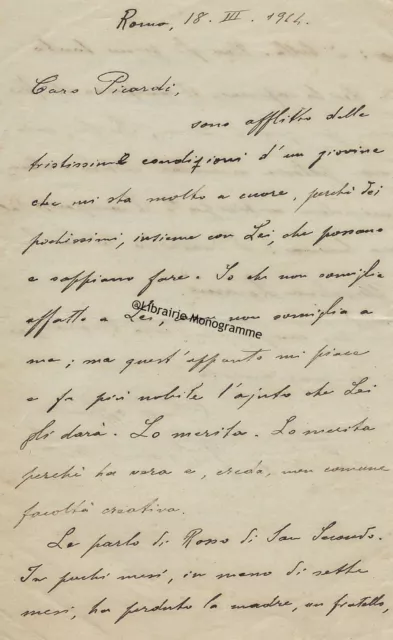 Roma, 18. III. 1914.
Caro Picardi,
sono afflitto delle
tristissime condizioni d'un giovine
che mi sta molto a cuore, perchè dei
pochissimi, insieme con Lei, che possano
e sappiano fare. So che non somiglia
affatto a Lei, non somiglia a
@Librairie Monogramme
me; ma quest'appunto mi piace
e fa più nobile l'ajuto che Lei
gli darà. Lo merita. Lo merita
perchè ha vera e, creda, non comune
facoltà creativa.
Le parlo di Rosso di San Secondo.
In pochi mesi, in meno di sette
mesi, ha perduto la madre, un fratello,